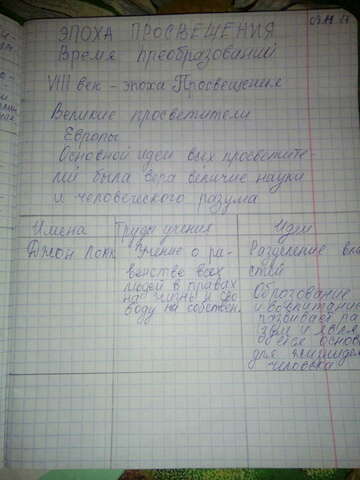 ЭПОХА ПРОСВЕЩЕНИЯ
Время преобразований
VIII век - эпоха Просвещения
Великие просветители
Европы
Основной идеи вых просветите-
лий была вера величие науки
и человеческого разума
Имена Труда учения Идеи
Джон Локк Учение о ра-
венстве всех
людей в правах
на жизнь и сво
воду на собствен.
Разделение вла
стей
Оброзование
и воспитание
развивает ра
зум и явля
ется основ
для жизнидея
человека